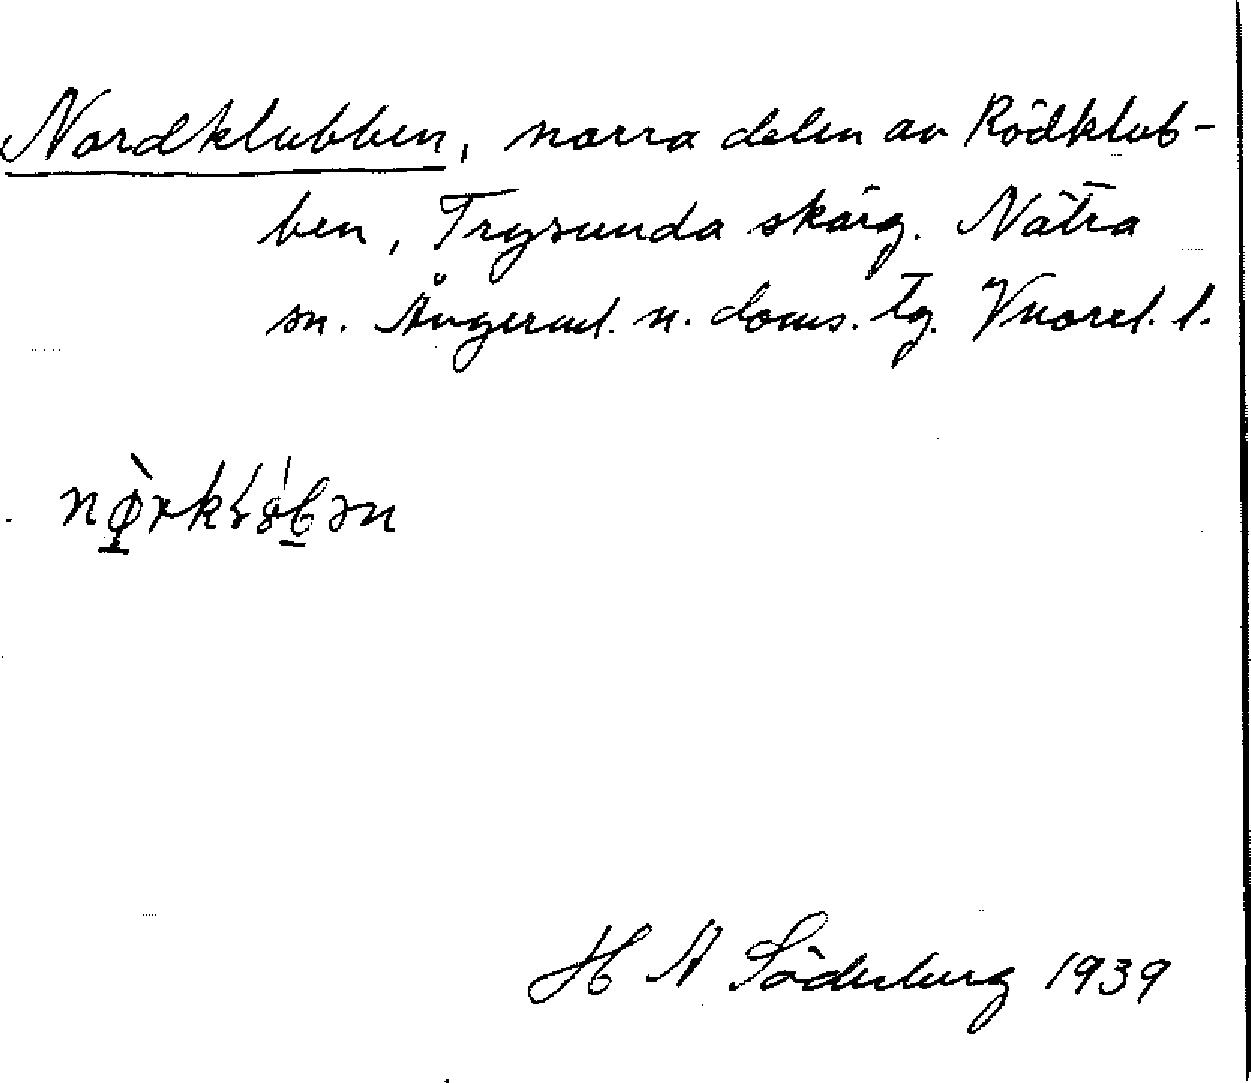 Nordklubben, norra delen av Rödklub-
ben, Trysunda skärg. Nätra
sn. Ångerml. n. doms. tg. Vnorrl. l.
H A Söderberg 1939